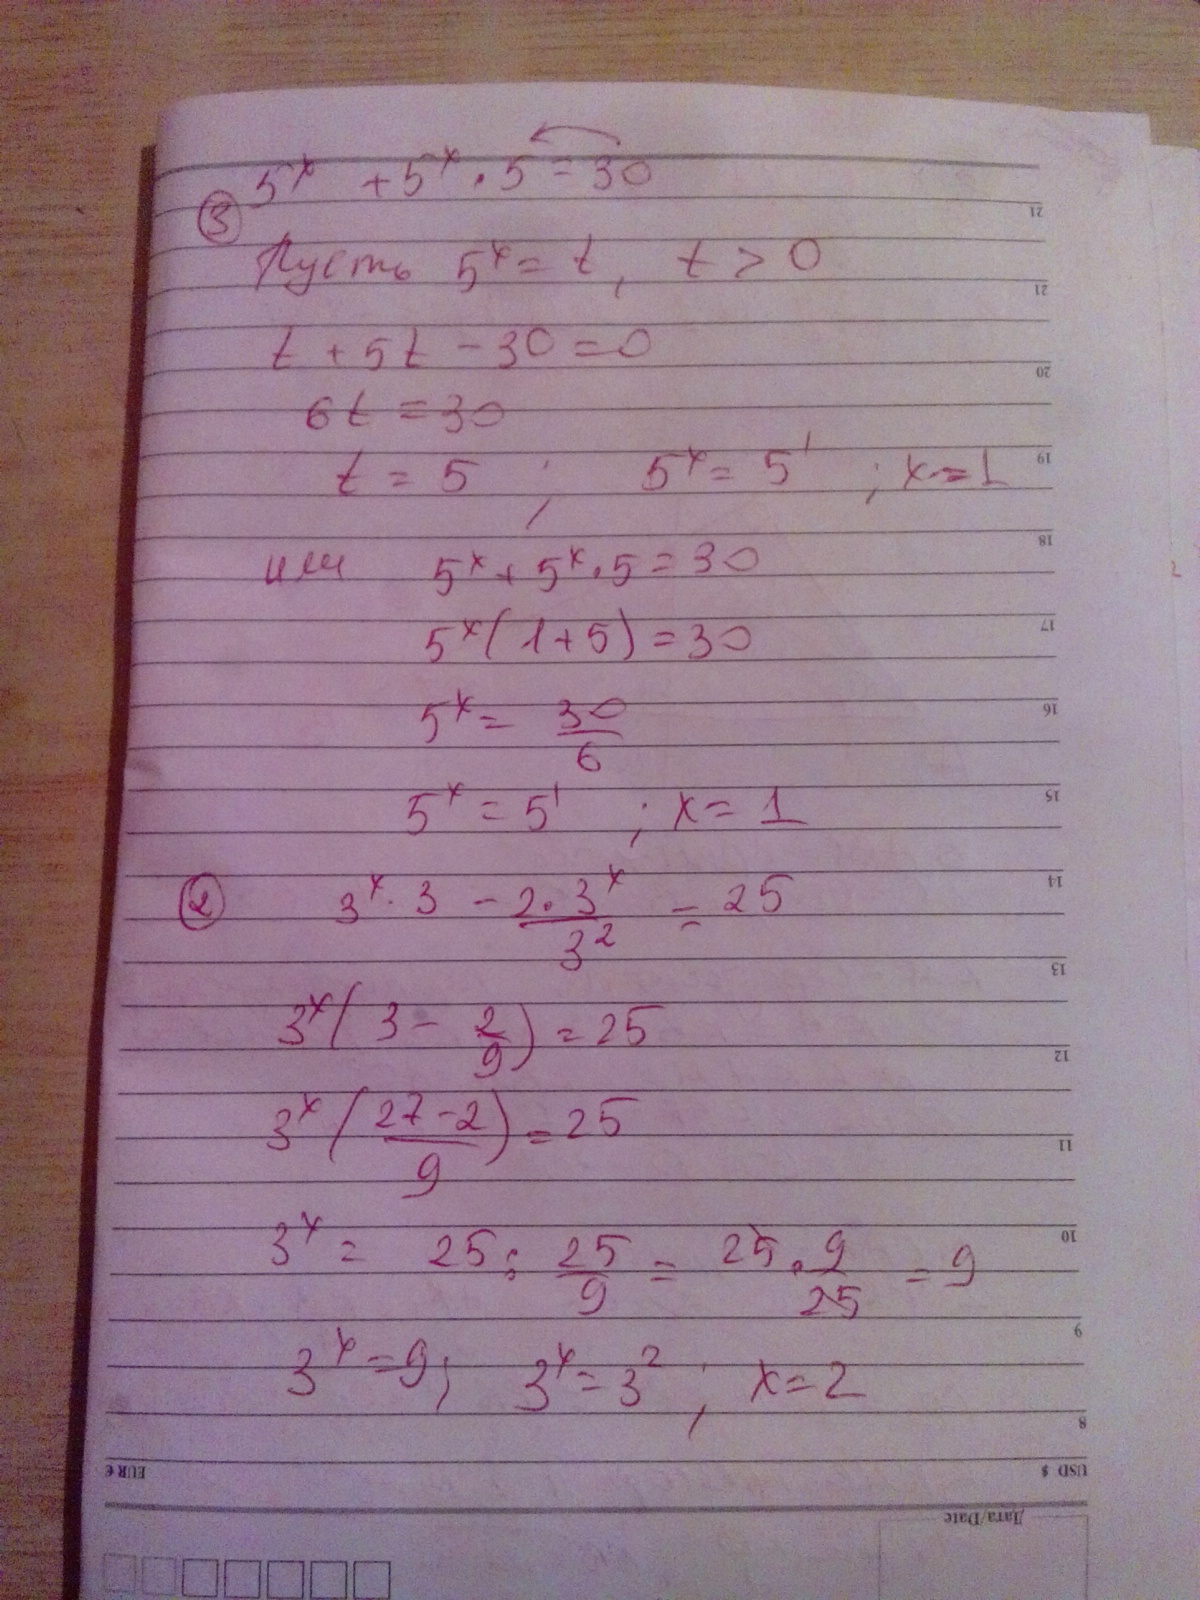 5ˣ + 5ˣ · 5 = 30
③
Пусть 5ˣ = t, t > 0
t + 5t - 30 = 0
6t = 30
t = 5 ; 5ˣ = 5¹ ; x = 1
или 5ˣ + 5ˣ · 5 = 30
5ˣ(1+5) = 30
5ˣ = 30/6
5ˣ = 5¹ ; x = 1
② 3ˣ · 3 - 2·3ˣ/3² = 25
3ˣ(3 - 2/9) = 25
3ˣ(27-2/9) = 25
3ˣ = 25 : 25/9 = 25·9/25 = 9
3ˣ = 9; 3ˣ = 3² ; x = 2
21
21
20
19
18
17
16
15
14
13
12
11
10
9
8
USD $
EUR €
Дата/Date